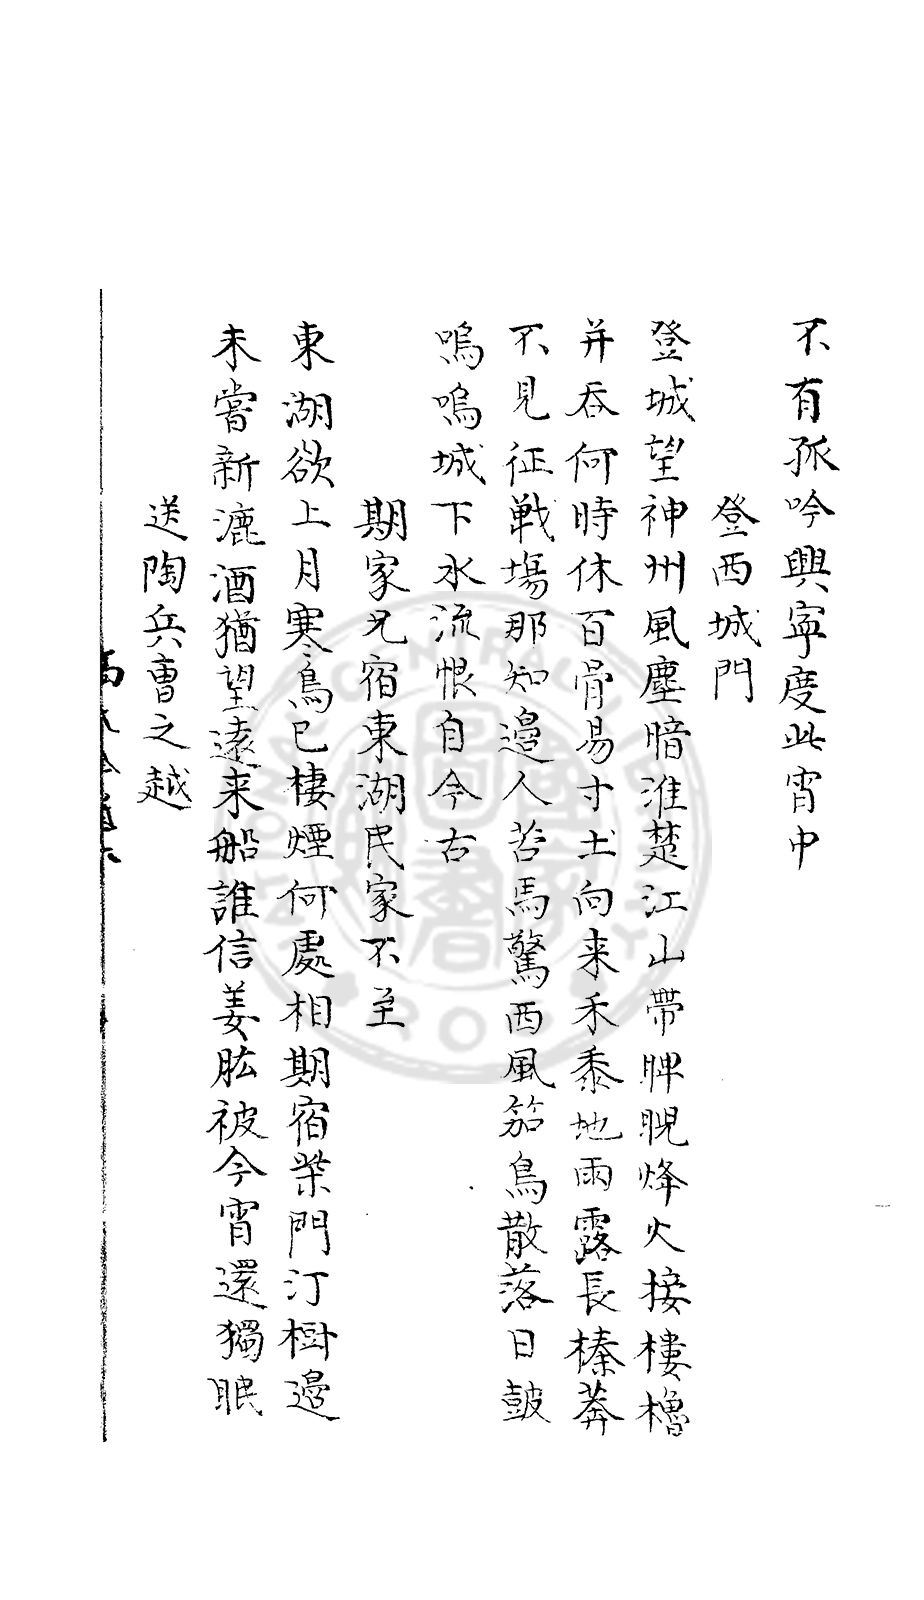 不有孤吟興寧度此宵中
登西城門
登城望神州風塵暗淮楚江山帶睥睨烽火接樓櫓
并吞何時休百骨易寸土向来禾黍地雨露長榛莽
不見征戰場那知邉人苦馬驚西風笳鳥散落日鼓
嗚嗚城下水流恨自今古
期家兄宿東湖民家不至
東湖欲上月寒鳥已棲煙何處相期宿柴門汀樹邉
未嘗新漉酒猶望遠来船誰信姜肱被今宵還獨眠
送陶兵曹之越